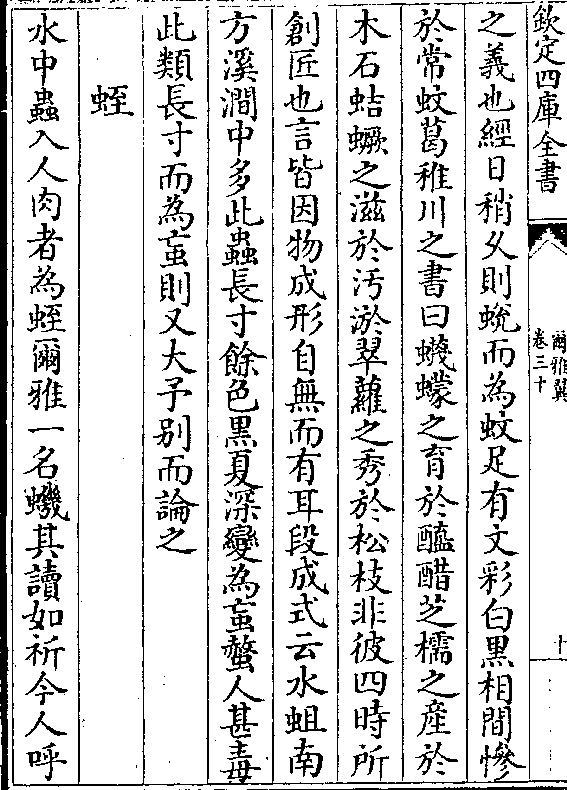 欽定四庫全書
爾雅翼
卷三十
十
之義也經日稍久則蛻而為蚊足有文彩白黒相間慘
於常蚊葛稚川之書曰蠛蠓之育於醯醋芝檽之産於
木石蛣𧎾之滋於汚淤翠蘿之秀於松枝非彼四時所
創匠也言皆因物成形自無而有耳段成式云水蛆南
方溪澗中多此蟲長寸餘色黒夏深變為䖟螫人甚毒
此類長寸而為䖟則又大予别而論之
蛭
水中蟲入人肉者為蛭爾雅一名蟣其讀如祈今人呼